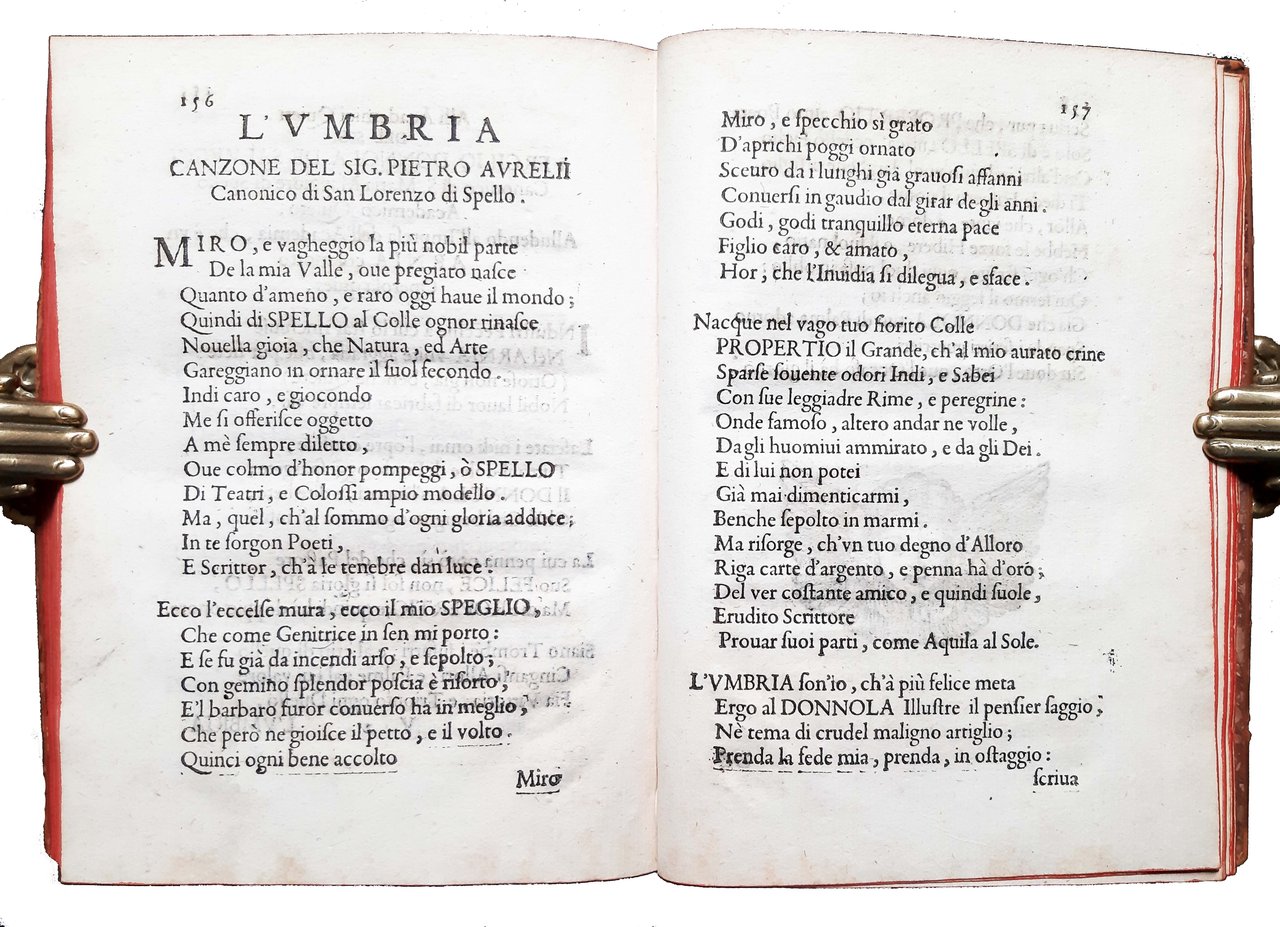 156
L'VMBRIA
CANZONE DEL SIG. PIETRO AVRELII
Canonico di San Lorenzo di Spello.
MIRO, e vagheggio la più nobil parte
De la mia Valle, oue pregiato nasce
Quanto d'ameno, e raro oggi haue il mondo;
Quindi di SPELLO al Colle ognor rinasce
Nouella gioia, che Natura, ed Arte
Gareggiano in ornare il suol fecondo.
Indi caro, e giocondo
Me si offerisce oggetto
A mè sempre diletto,
Oue colmo d'honor pompeggi, ò SPELLO
Di Teatri, e Colossi ampio modello.
Ma, quel, ch'al sommo d'ogni gloria adduce;
In te sorgon Poeti,
E Scrittor, ch'à le tenebre dan luce:
Ecco l'eccelse mura, ecco il mio SPEGLIO,
Che come Genitrice in sen mi porto:
E se fu già da incendi arso, e sepolto;
Con gemino splendor poscia è risorto,
E'l barbaro furor conuerso ha in meglio,
Che però ne gioisce il petto, e il volto.
Quinci ogni bene accolto
Miro
157
Miro, e specchio sì grato
D'aprichi poggi ornato
Sceuro da i lunghi già grauosi affanni
Conuersi in gaudio dal girar de gli anni.
Godi, godi tranquillo eterna pace
Figlio caro, & amato,
Hor, che l'Inuidia si dilegua, e sface.
Nacque nel vago tuo fiorito Colle
PROPERTIO il Grande, ch'al mio aurato crine
Sparse souente odori Indi, e Sabei
Con sue leggiadre Rime, e peregrine:
Onde famoso, altero andar ne volle,
Da gli huomiui ammirato, e da gli Dei.
E di lui non potei
Già mai dimenticarmi,
Benche sepolto in marmi.
Ma risorge, ch'vn tuo degno d'Alloro
Riga carte d'argento, e penna hà d'oro;
Del ver costante amico, e quindi suole,
Erudito Scrittore
Prouar suoi parti, come Aquila al Sole.
L'VMBRIA son'io, ch'à più felice meta
Ergo al DONNOLA Illustre il pensier saggio;
Nè tema di crudel maligno artiglio;
Prenda la fede mia, prenda, in ostaggio:
scriua